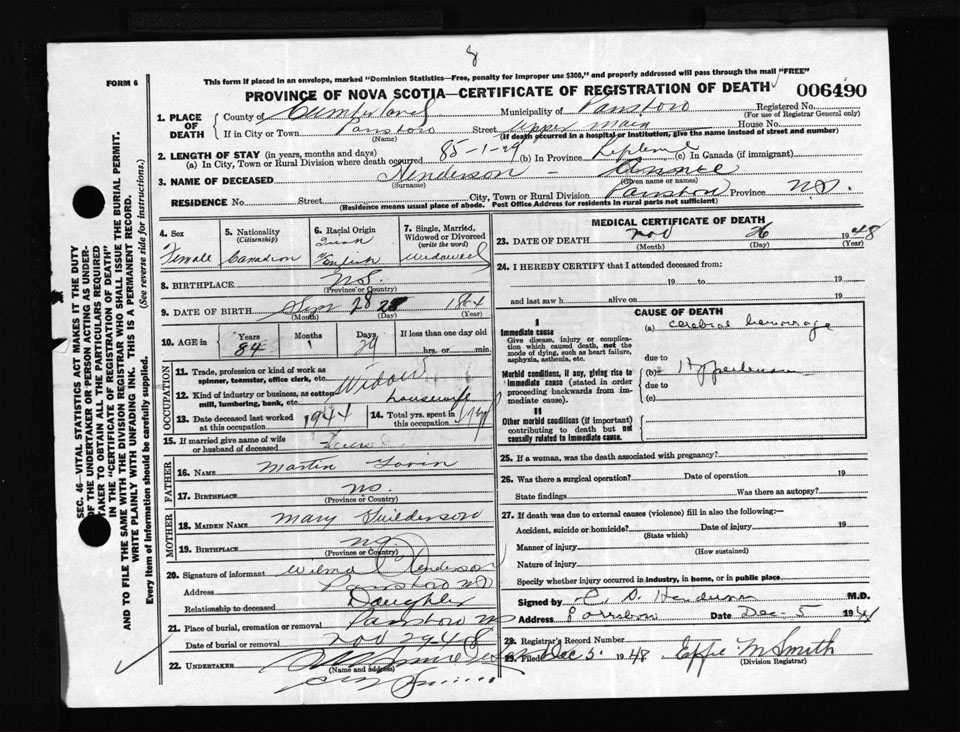 8
This form if placed in an envelope, marked "Dominion Statistics—Free, penalty for improper use $300," and properly addressed will pass through the mail "FREE"
FORM 6
PROVINCE OF NOVA SCOTIA—CERTIFICATE OF REGISTRATION OF DEATH
006490
1. PLACE OF DEATH
County of Cumberland Municipality of Parrsboro Registered No.
(For use of Registrar General only)
If in City or Town Parrsboro Street Upper Main House No.
(Name) (If death occurred in a hospital or institution, give the name instead of street and number)
2. LENGTH OF STAY (in years, months and days)
(a) In City, Town or Rural Division where death occurred 85-1-29 (b) In Province (c) In Canada (if immigrant)
3. NAME OF DECEASED Henderson - Annie
(Surname) (Given name or names)
RESIDENCE No. Street City, Town or Rural Division Parrsboro Province N.S.
(Residence means usual place of abode. Post Office Address for residents in rural parts not sufficient)
4. Sex Female
5. Nationality (Citizenship) Canadian
6. Racial Origin
7. Single, Married, Widowed or Divorced (write the word) Widowed
8. BIRTHPLACE N.S.
(Province or Country)
9. DATE OF BIRTH 28 1864
(Month) (Day) (Year)
10. AGE in Years 84 Months 1 Days 29 If less than one day old
hrs. or min.
OCCUPATION
11. Trade, profession or kind of work as spinner, teamster, office clerk, etc. Widow
12. Kind of industry or business, as cotton mill, lumbering, bank, etc. housewife
13. Date deceased last worked at this occupation 1944
14. Total yrs. spent in this occupation
15. If married give name of wife or husband of deceased
FATHER
16. NAME Martin
17. BIRTHPLACE N.S.
(Province or Country)
MOTHER
18. MAIDEN NAME Mary
19. BIRTHPLACE N.S.
(Province or Country)
20. Signature of informant Wilma Henderson
Address Parrsboro NS
Relationship to deceased Daughter
21. Place of burial, cremation or removal Parrsboro NS
Date of burial or removal Nov 29 1948
22. UNDERTAKER
(Name and address)
MEDICAL CERTIFICATE OF DEATH
23. DATE OF DEATH Nov 26 1948
(Month) (Day) (Year)
24. I HEREBY CERTIFY that I attended deceased from:
19 to 19
and last saw h alive on 19
CAUSE OF DEATH
I
Immediate cause
Give disease, injury or complication which caused death, not the mode of dying, such as heart failure, asphyxia, asthenia, etc.
(a) cerebral hemorrage
due to
Morbid conditions, if any, giving rise to immediate cause (stated in order proceeding backwards from immediate cause).
(b)
due to
(c)
II
Other morbid conditions (if important) contributing to death but not causally related to immediate cause.
25. If a woman, was the death associated with pregnancy?
26. Was there a surgical operation? Date of operation 19
State findings Was there an autopsy?
27. If death was due to external causes (violence) fill in also the following:—
Accident, suicide or homicide? Date of injury 19
(State which)
Manner of injury
(How sustained)
Nature of injury
Specify whether injury occurred in industry, in home, or in public place
Signed by Henderson M.D.
Address Parrsboro Date Dec. 5 19
28. Registrar's Record Number
29. Filed Dec 5. 1948 Effie M Smith
(Division Registrar)
SEC. 46—VITAL STATISTICS ACT MAKES IT THE DUTY
OF THE UNDERTAKER OR PERSON ACTING AS UNDER-
TAKER TO OBTAIN ALL THE PARTICULARS REQUIRED
IN THE "CERTIFICATE OF REGISTRATION OF DEATH"
AND TO FILE THE SAME WITH THE DIVISION REGISTRAR WHO SHALL ISSUE THE BURIAL PERMIT.
WRITE PLAINLY WITH UNFADING INK. THIS IS A PERMANENT RECORD.
Every item of Information should be carefully supplied. (See reverse side for instructions.)